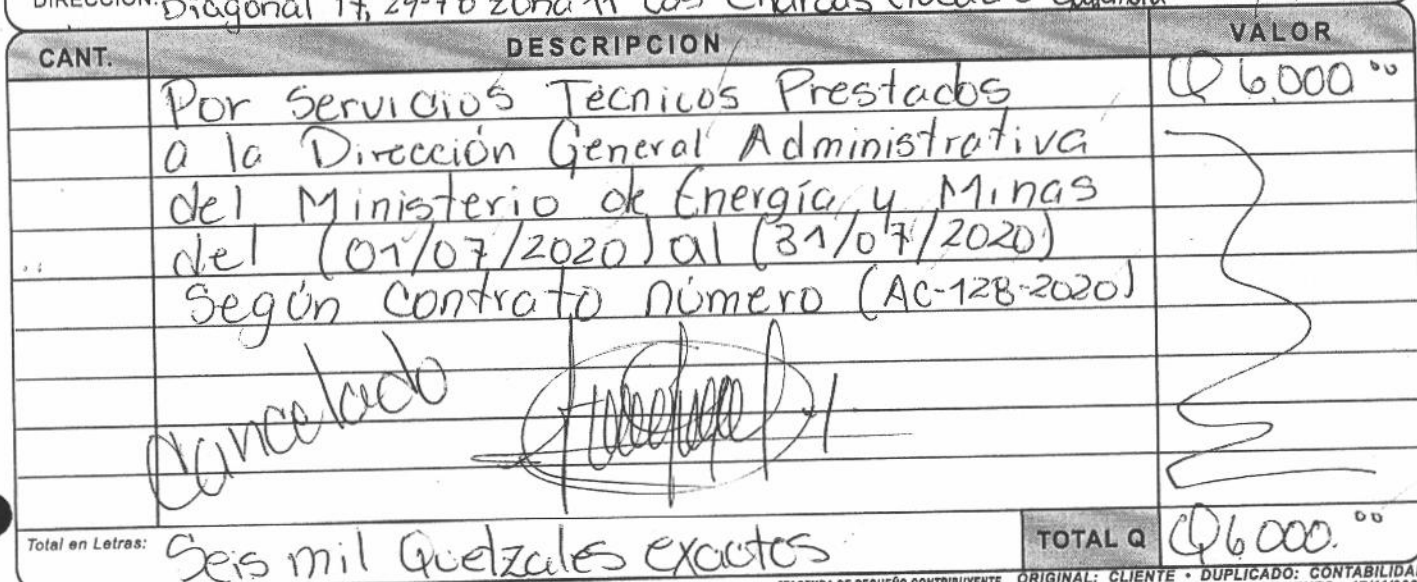 DIRECCION: Diagonal 17, 29-78 zona 11 Las Charcas
CANT. DESCRIPCION VALOR
Por Servicios Técnicos Prestados Q 6,000.00
a la Dirección General Administrativa
del Ministerio de Energía y Minas
del (01/07/2020) al (31/07/2020)
Según Contrato número (AC-128-2020)
Cancelado
Total en Letras: Seis mil Quetzales exactos TOTAL Q Q6,000.00
FACTURA DE PEQUEÑO CONTRIBUYENTE ORIGINAL: CLIENTE • DUPLICADO: CONTABILIDA